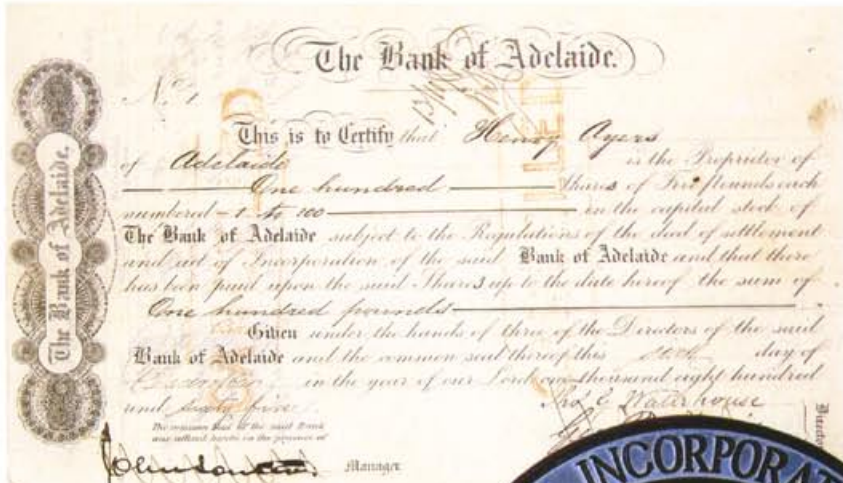 The Bank of Adelaide.
No. 1
This is to Certify that Henry Ayers
of Adelaide is the Proprietor of
One hundred Shares of Five Pounds each
numbered 1 to 100 in the capital stock of
The Bank of Adelaide subject to the Regulations of the deed of settlement
and act of Incorporation of the said Bank of Adelaide and that there
has been paid upon the said Shares up to the date hereof the sum of
One hundred pounds
Given under the hands of three of the Directors of the said
Bank of Adelaide and the common seal thereof this day of
in the year of our Lord one thousand eight hundred
and sixty five.
The common Seal of the said Bank
was affixed hereto in the presence of
Manager
G Waterhouse
The Bank of Adelaide.
INCORPORAT